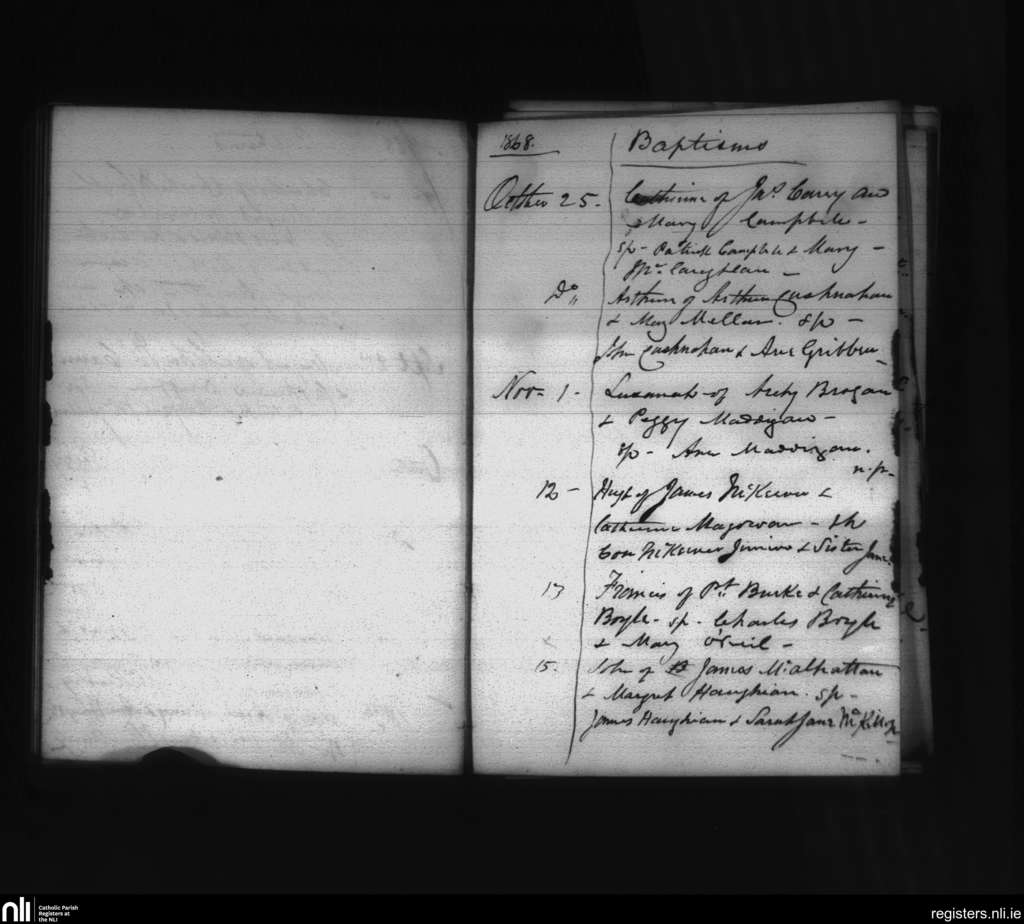 1868.
Baptisms
October 25 - Catherine of Jas. Carey and
Mary Campbele -
sp - Patrick Campbele & Mary -
Mc. Laughlan -
Do " Arthur of Arthur Cushnahan
& Mary Mellan. sp -
John Cushnahan & Ane Gribben
Nov - 1 - Susannah of Archy Brogan
& Peggy Maddigan -
sp - Ann Maddigan.
n.p.
12 - Hugh of James McKeever &
Catherine Magowan - sp
Con McKeever Junior & Sister Jane.
13 Francis of Pt. Burke & Catherine
Boyle - sp - Charles Boyle
& Mary O'Neil -
15. John of James McAlhattan
& Margret Haughian. sp -
James Haughian & Sarah Jane McKillop
nli
Catholic Parish
Registers at
the NLI
registers.nli.ie